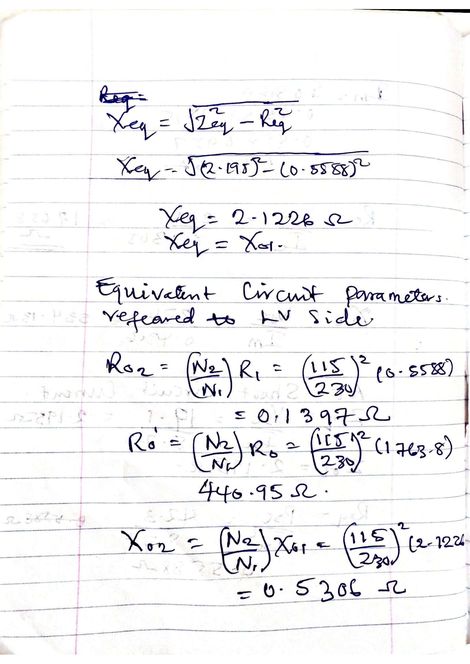 Xeq = √Zeq² - Req²
Xeq = √(2.195)² - (0.5588)²
Xeq = 2.1226 Ω
Xeq = X01.
Equivalent Circuit parameters.
refeared to LV Side
R02 = (N2/N1) R1 = (115/230)² (0.5588)
= 0.1397 Ω
R0' = (N2/N1) R0 = (115/230)² (1763.8)
440.95 Ω.
X02 = (N2/N1) X01 = (115/230)² (2.1226
= 0.5306 Ω